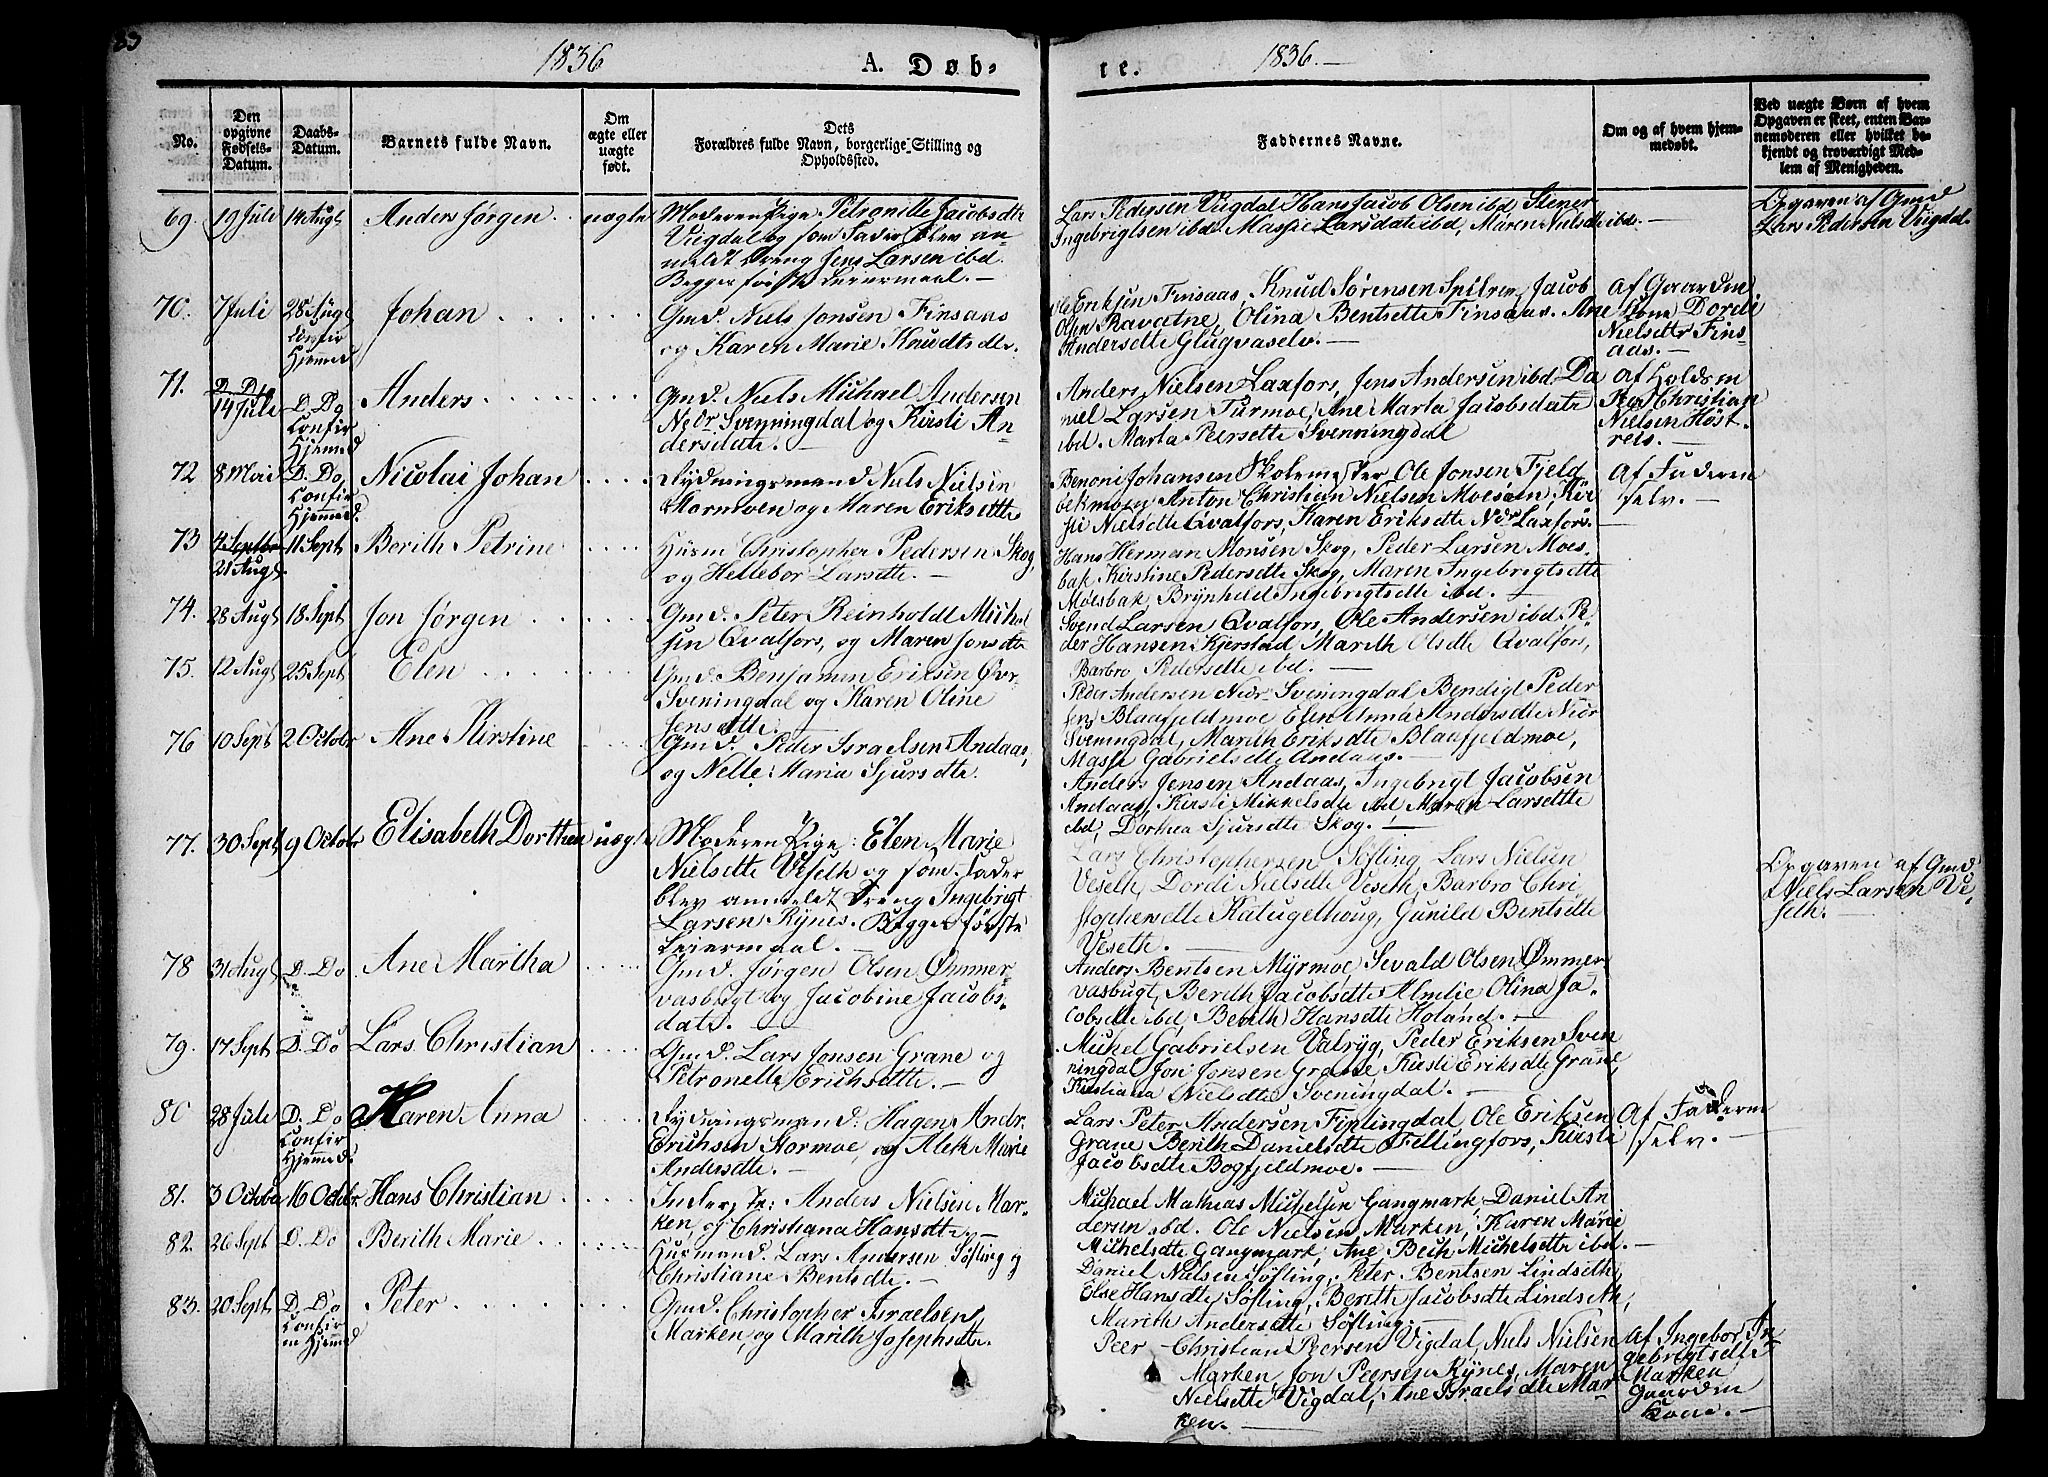 83
1836
A. Døb-
te.
1836.
No.
Den
opgivne
Fødsels-
Datum.
Daabs-
Datum.
Barnets fulde Navn.
Om
ægte eller
uægte
født.
Dets
Forældres fulde Navn, borgerlige Stilling og
Opholdssted.
Faddernes Navne.
Om og af hvem hjem-
medøbt.
Ved uægte Børn af hvem
Opgaven er skeet, enten Bar-
nemoderen eller hvilket be-
kjendt og troværdigt Med-
lem af Menigheden.
69. 19 Juli 14 Augt Anders Jørgen uægte
Moderen Pige Petronille Jacobsdtr
Viigdal og som Fader blev an-
meldt Dreng Jens Larsen ibd.
Begges første Leiermaal.
Lars Pedersen Viigdal Hans Jacob Olsen ibd, Stener
Ingebrigtsen ibd Massie Larsdatr ibd, Maren Nielsdtr ibd.
Opgaven af Gmd
Lars Pedersen Viigdal
70. 7 Juli 28 Augt Confir Hjemmed Johan
Gmd. Niels Jonsen Finsaas
og Karen Marie Knudtsdtr.
Ole Eriksen Finsaas, Knud Sørensen Spilren, Jacob
Olsen Ravatne, Olina Bentsdtte Finsaas. Ane
Andersdtte Glugvaselv.
Af Gaardm
Kone Dordi
Nielsdtr Fins-
aas.
71. 14 Juli D. Do Confir Hjemmed Anders
Gmd. Niels Michael Andersen
Nedr Svenningdal og Kirsti An-
dersdatr.
Anders Nielsen Laxfors, Jens Andersen ibd. Da
niel Larsen Turmoe, Ane Marta Jacobsdatr
ibd. Marta Peersdtte Svenningdal
Af Holdsm
Christian
Nielsen Høst
reis.
72 8 Mai D. Do Confir Hjemmed. Nicolai Johan
Rydningsmand Niels Nielsen
Stormoen og Maren Eriksdtte
Benoni Johansen Skolemester Ole Jonsen Fjeld
bekmoen, Anton Christian Nielsen Moesaen, Kir
sti Nielsdtte Qvalfors, Karen Eriksdtte Ndr Laxfors.
Af Faderen
selv.
73 4 Septbr 21 Augt. 11 Sept Berith Petrine
Husm Christopher Pedersen Skog
og Hellebor Larsdtte.
Hans Herman Monsen Skog, Peder Larsen Moes-
bak Kirstine Pedersdtte Skog, Maren Ingebrigtsdtte
Moesbak, Brynheld Ingebrigtsdtte ibd.
74. 28 Augt 18 Sept Jon Jørgen
Gmd. Peter Reinholdt Michel
sen Qvalfors, og Maren Jonsdtr
Svend Larsen Qvalfors, Ole Andersen ibd, Pe-
der Hansen Kjerstad, Marith Olsdtr Qvalfors,
Barbro Pedersdtte ibd.
75. 12 Augt 25 Sept Elen
Gmd. Benjamin Eriksen Øvr
Sveningdal og Karen Oline
Jensdtte.
Peder Andersen Nedr Sveningdal Bendigt Peder-
sen Blaafjeldmoe Elen Anna Andersdtte Nedr
Sveningdal, Marith Eriksdtte Blaafjeldmoe,
Massi Gabrielsdtte Andaas.
76 10 Sept 2 Octobr Ane Kirstine
Gmd. Peder Israelsen Andaas,
og Nelle Maria Sjursdtr.
Anders Jensen Andaas, Ingebrigt Jacobsen
Andaas, Kirsti Mikkelsdtr ibd, Maren Larsdtte
ibd, Dorthea Sjursdtte Skog.
77. 30 Sept 9 Octobr Elisabeth Dorthea uægt.
Moderen Pige: Elen Marie
Nielsdtte Veseth og som Fader
blev anmeldt Dreng Ingebrigt
Larsen Rynes. Begges første
Leiermaal.
Lars Christophersen Søfting, Lars Nielsen
Veseth, Dordi Nielsdtte Veseth, Barbro Chri-
stophersdtte Katugelhoug, Gunild Bentsdtte
Veseth.
Opgaven af Gmd
Niels Larsen Ve-
seth.
78 31 Augt D. Do Ane Martha
Gmd. Jørgen Olsen Ømmer-
vasbugt og Jacobine Jacobs-
datr.
Anders Bentsen Myrmoe, Sevald Olsen Ømmer-
vasbugt, Berith Jacobsdtte Almlie Olina Ja-
cobsdtte ibd, Berith Hansdtte Holand.
79. 17 Sept D. Do Lars Christian
Gmd. Lars Jonsen Grane og
Petronelle Erichsdtte.
Michel Gabrielsen Valryg, Peder Eriksen Sven
ningdal Jon Jonsen Grane, Kirsti Eriksdtr Grane,
Kirstiana Nielsdtte Sveningdal.
80 28 Juli D. Do Confir Hjemmed. Karen Anna
Rydningsmand: Hagen Andr.
Erichsen Stormoe, og Alek Marie
Andersdtte.
Lars Peter Andersen Fiplingdal, Ole Eriksen
Grane Berith Danielsdtte Fellingfors, Kirsti
Jacobsdtte Bogfjeldmoe.
Af Faderen
selv.
81. 3 Octobr 16 Octobr. Hans Christian
Inderst: Anders Nielsen Mar-
ken, og Christiana Hansdtr.
Michael Mathias Michelsen Gangmark, Daniel An
dersen ibd. Ole Nielsen Marken, Karen Marie
Michelsdtte Gangmark, Ane Beth Michelsdtte ibd.
82. 26 Sept D. Do Berith Marie
Husmand. Lars Andersen Søfting og
Christiane Bentsdtte.
Daniel Nielsen Søfting, Peter Bentsen Lindseth,
Else Hansdtte Søfting, Berithe Jacobsdtte Lindseth,
Marith Andersdtte Søfting.
83. 20 Sept D. Do Confir m Hjemmed Peter
Gmd. Christopher Israelsen
Marken, og Marith Josephsdtr.
Peer Christian Peersen Vigdal, Niels Nielsen
Marken Jon Peersen Rynes, Maren
Nielsdtte Vigdal, Ane Israelsdtr Mar
ken.
Af Ingebor In-
gebrigtsdtte
Marken
Gaardm
Kone.